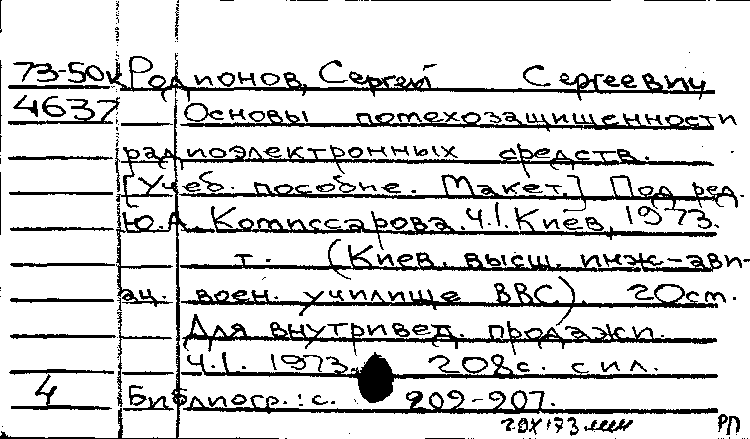 73-50к Родионов, Сергей Сергеевич
4637 Основы помехозащищенности
радиоэлектронных средств.
[Учеб. пособие. Макет.] Под ред.
Ю.А. Комиссарова. Ч.1. Киев, 1973.
т. (Киев. высш. инж-ави-
ац. воен. училище ВВС). 20см.
Для внутривед. продажи.
Ч.1. 1973. 208с. с ил.
4 Библиогр.: с. 209-907.
РП